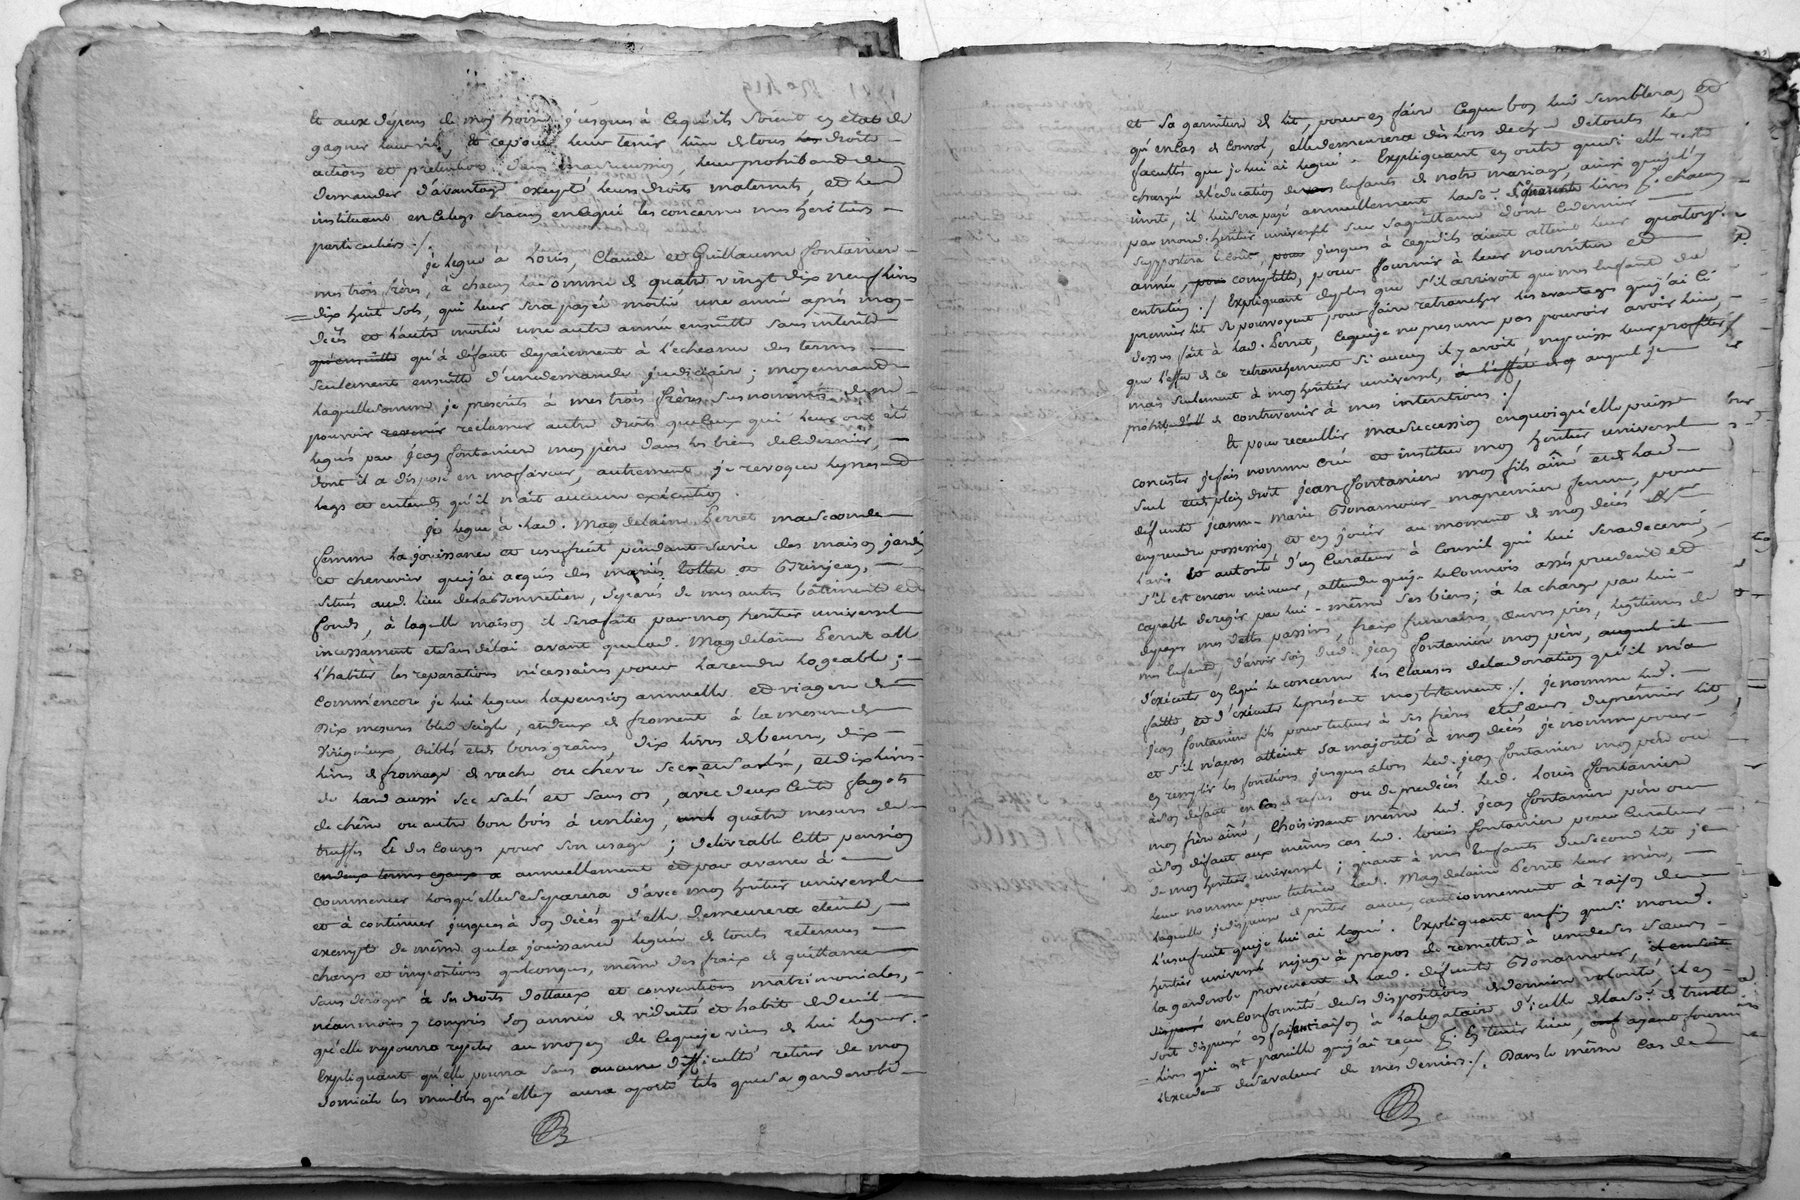 et aux depens de mon hoirie jusques à cequ'ils soient en état de
gagner leur vie, et cepour leur tenir lieu de tous les droits
actions et pretentions dans masuccession, leur prohibant de
demander d'avantage excepté leurs droits maternels, et les
instituant en celegs chacun encequi les concerne mes heritiers
particuliers ./.
je legue à Louis, Claude et Guillaume fontanier
mes trois frères, à chacun la somme de quatre vingt dix neuf livres
dix huit sols, qui leur sera payée moitié une année après mon
décès et l'autre moitié une autre année ensuitte sans interêts
qu'à défaut depaiement à l'echeance des termes
seulement ensuitte d'unedemande judiciaire; moyennant
laquellesomme je prescrits à mes trois frères susnommés de ne
pouvoir reclamer autre droits quelconque qui leur ont été
legués par jean fontanier mon père dans les biens dudernier,
dont il a disposé en mafaveur, autrement je revoque lepresent
legs et entends qu'il n'ait aucune exécution.
je legue à lad. Magdelaine Perret maseconde
femme la jouissance et usufruit pendant savie des maison jardin
et chenevier quej'ai acquis des mariés et Grinjean,
situés aud. lieu , separés de mes autres bâtiments et
fonds, à laquelle maison il serafait par mon heritier universel
incessament etsans délai avant quelad. Magdelaine Perret aille
l'habiter les reparations nécessaires pour larendre logeable;
Comm'encore je lui legue lapension annuelle et viagere de
Dix mesures bled seigle, etdeux de froment à la mesure de
criblé etde bons grains, dix livres de beurre, dix
livres de fromage de vache ou chevre sec , etdix livres
de lard aussi sec salé et sans os, avec deux cents fagots
de chêne ou autre bon bois à unlien, quatre mesures de
truffes et des courges pour son usage; delivrable cette pension
endeux termes egaux a annuellement et par avance à
commencer lorsqu'elle seseparera d'avec mon heritier universel
et à continuer jusques à son décès qu'elle demeurera eteinte,
exempte de même quela jouissance leguée de touts retenues
charges et impositions quelconques, même des frais de quittance
sans deroger à ses droits dottaux et conventions matrimoniales,
néanmoins y compris son année de viduité et habit dedeuil
qu'elle nepourra repeter au moyen de cequeje viens de lui leguer.
Expliquant qu'elle pourra sans aucune difficulté retirer de mon
domicile les meubles qu'elle y aura aporté tels quesa garderobe
et sa garniture de lit, pour en faire cequebon lui semblera, et
qu'encas de convol, elle demeurera dèslors dechue detouts les
facultés que je lui ai legué. Expliquant en outre quesi elle reste
chargée de l'éducation des enfants de notre mariage, ainsi quejel'y
invite, il luisera payé annuellement lasoe. de quarante livres p. chacun
par mond. heritier universel
jusques à cequ'ils aient atteint leur quatorze
années, complettes, pour fournir à leur nourriture et
entretien ./. Expliquant deplus que s'il arrivoit que mes enfants du
premier lit se pourvoyent pour faire retrancher les avantages quej'ai ci
dessus fait à lad. Perret, cequeje ne presume pas pouvoir avoir lieu,
que l'effet de ce retranchement si aucun il y avoit nepuisse leurprofiter
mais seulement à mon heritier universel, auquel je
prohibe de contrevenir à mes intentions ./.
Et pour recueillir masuccession enquoiqu'elle puisse
consister jefais nomme crée et institue mon heritier universel
seul etde plein droit jean fontanier mon fils aîné etde lad
défunte jeanne-Marie Bonamour mapremière femme, pour
enprendre possession et en jouir au moment de mon décès
l'avis et autorité d'un Curateur à Conseil qui lui seradecerné,
s'il est encore mineur, attendu queje leconnois assés prudent et
capable deregir par lui-même ses biens; à la charge par lui
depayer mes dettes passives, fraix funeraires, œuvres pies, legitimes de
mes enfants, d'avoir soin dud. jean fontanier mon père,
d'exécuter en cequi le concerne les clauses deladonation qu'il m'a
faitte, et d'exécuter leprésent montestament ./. je nomme led.
jean fontanier fils pour tuteur à ses frères etsœurs dupremier lit,
et s'il n'apas atteint sa majorité à mon décès je nomme pour
en remplir les fonctions jusques alors led. jean fontanier mon père ou
àson défaut en cas de refus ou deprédecés led. Louis fontanier
mon frère aîné, choisissant même led. jean fontanier père ou
àson défaut aux mêmes cas led. Louis fontanier pour Curateur
de mon heritier universel; quant à mes Enfants dusecond lit je
leur nomme pour tutrice lad. Magdelaine Perret leur mère,
laquelle jedispense de prêter aucun cautionnement à raison de
l'usufruit queje lui ai legué. Expliquant enfin quesi mond.
heritier universel nejuge à propos de remettre à unedeses sœurs
la garderobe provenant de lad. défunte Bonamour,
enconformité deses dispositions dederniere volonté, il en
soit dispensé en faisant raison à lalegataire d'icelle delasoe. de trente
livres qui est pareille quej'ai reçu ayant fourni
l'excedent desavaleur de mes deniers ./. Dans le même cas de